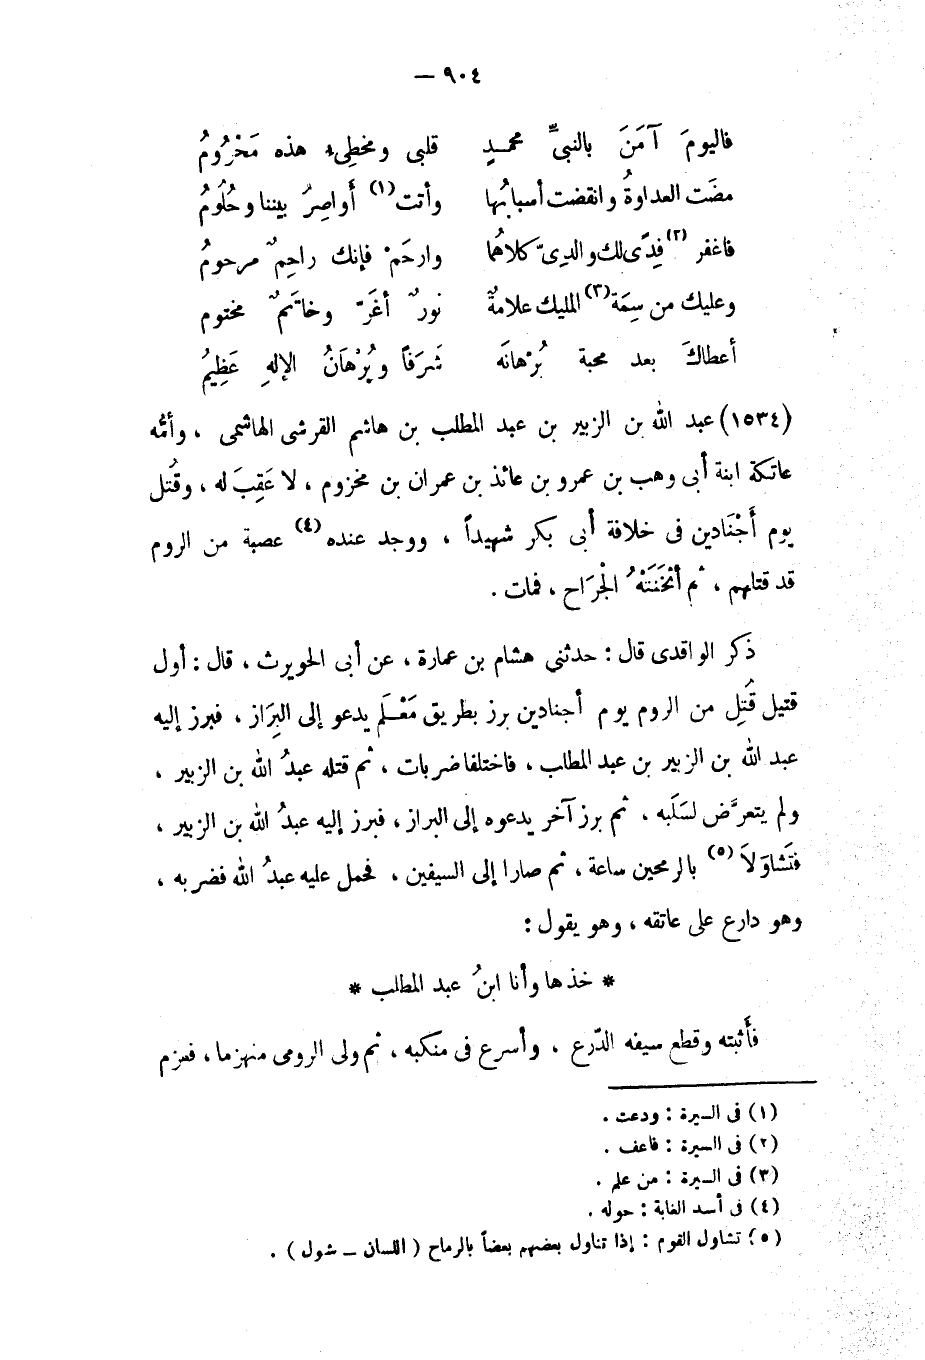 — ٩٠٤
فاليومَ آمَنَ بالنبىِّ محمـدٍ قلبى ومخطِىء هذه مَحْرُومُ
مضَت العداوةُ وانقضت أسبابُها وأتت(١) أَواصِرُ بيننا وحُلُومُ
فاغفر(٢) فِدًى لك والدِىّ كلاهُما وارحَمْ فإنك راحِمٌ مرحومُ
وعليك من سِمَة(٣) المليك علامةٌ نورٌ أغَرّ وخاتَمٌ مختوم
أعطاكَ بعد محبة بُرْهانَه شَرَفاً وبُرْهَانُ الإلهِ عَظِيمُ
(١٥٣٤) عبد الله بن الزبير بن عبد المطلب بن هاشم القرشى الهاشمى ، وأمُّه
عاتكة ابنة أبى وهب بن عمرو بن عائذ بن عمران بن مخزوم ، لا عَقِبَ له ، وقُتل
يوم أَجْنَادين فى خلافة أبى بكر شهيداً ، ووجد عنده(٤) عصبة من الروم
قد قتلهم ، ثم أثْخَنَتْهُ الْجِرَاح ، فمات .
ذكر الواقدى قال : حدثني هشام بن عمارة ، عن أبى الحويرث ، قال : أول
قتيل قُتِل من الروم يوم أجنادين برز بطريق مَعْـلَم يدعو إلى البِرَاز ، فبرز إليه
عبد الله بن الزبير بن عبد المطلب ، فاختلفا ضربات ، ثم قتله عبدُ الله بن الزبير ،
ولم يتعرَّض لسَلَبه ، ثم برز آخر يدعوه إلى البراز ، فبرز إليه عبدُ الله بن الزبير ،
فتَشاوَلاَ(٥) بالرمحين ساعة ، ثم صارا إلى السيفين ، فحمل عليه عبدُ الله فضربه ،
وهو دارع على عاتقه ، وهو يقول :
* خذها وأنا ابنُ عبد المطلب *
فأَثبته وقطع سيفه الدّرع ، وأسرع فى منكبه ، ثم ولى الرومى منهزما ، فعزم
(١) فى السيرة : ودعت .
(٢) فى السيرة : فاعف .
(٣) فى السيرة : من علم .
(٤) فى أسد الغابة : حوله .
(٥) تشاول القوم : إذا تناول بعضهم بعضاً بالرماح ( اللسان – شول ) .